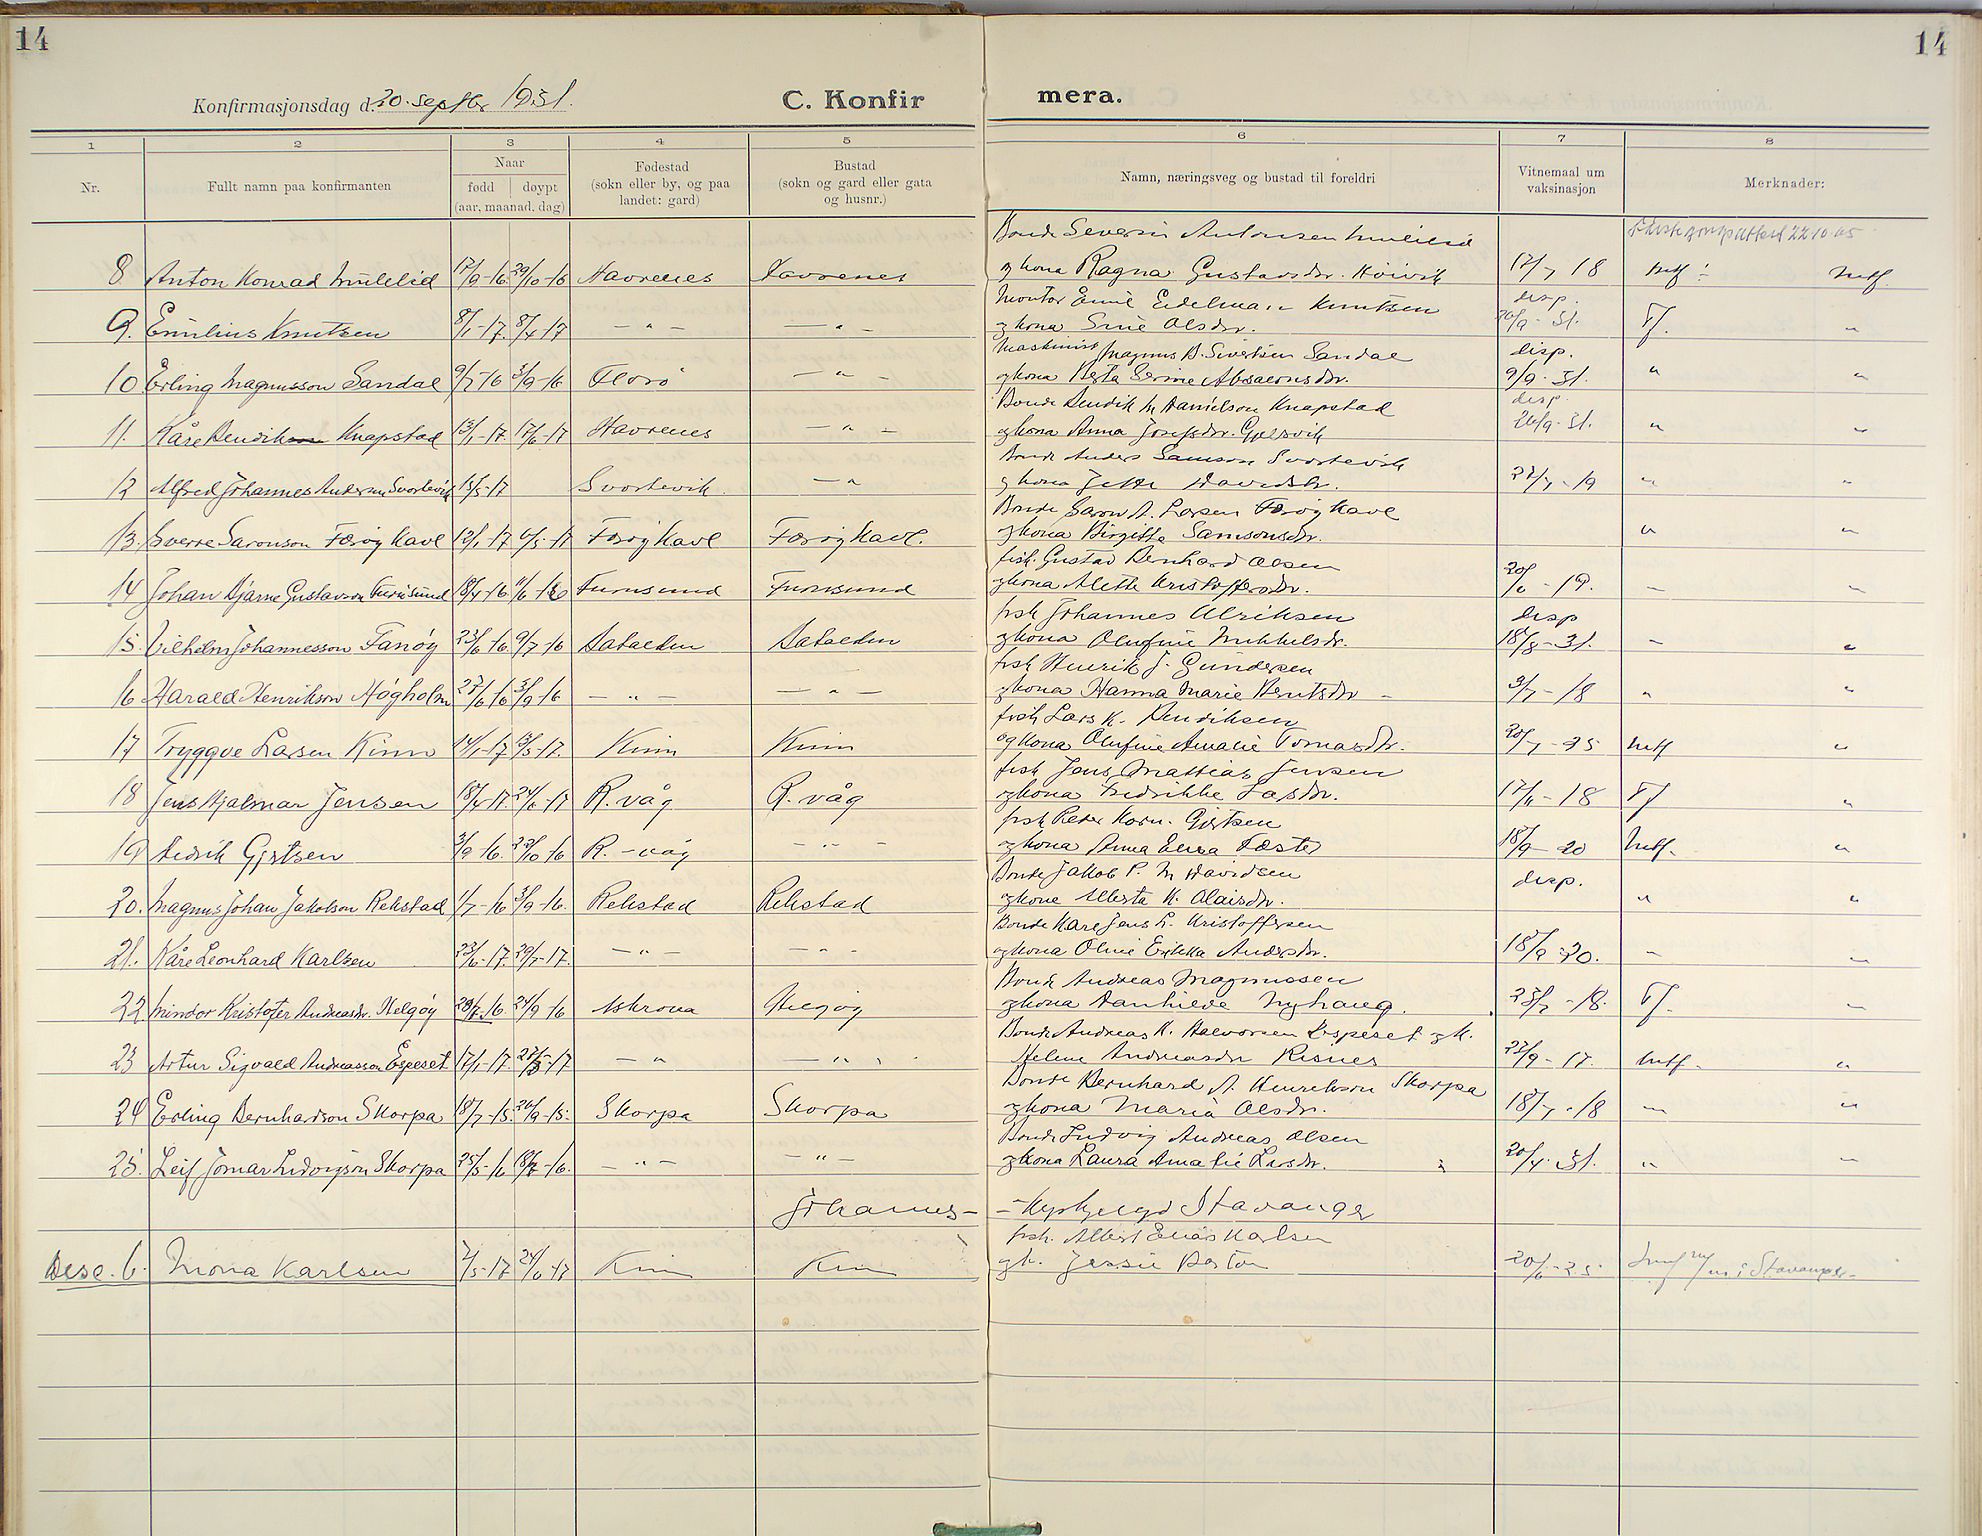 14
14
Konfirmasjonsdag d. 20. septbr 1931.
C. Konfir mera.
1 2 3 4 5 6 7 8
Nr.
Fullt namn paa konfirmanten
Naar
fødd døypt
(aar, maanad, dag)
Fødestad
(sokn eller by, og paa
landet: gard)
Bustad
(sokn og gard eller gata
og husnr.)
Namn, næringsveg og bustad til foreldri
Vitnemaal um
vaksinasjon
Merknader:
Bonde Severin Antonsen
8 Anton Konrad 17/9-16 29/10-16 Havrenes Havrenes og kona Ragna Gustavsdr. 17/7 18
Montør Emil Edelman Knutsen disp.
9. Emilius Knutsen 8/1-17. 8/4-17 — " — — " — og kona Sine Olsdr. "
Maskinist Magnus B. Sivertsen Sandal disp.
10 Erling Magnusson Sandal 9/7-16 3/9-16 Florø — " — og kona Berta Serine Absalonsdr. 9/9-31. " "
Bonde Bendik M Danielson Knapstad disp.
11. Kåre Bendikson Knapstad 13/1-17 17/6-17 Havrenes — " — og kona Anna Josefsdr. 26/9-31. " "
Bonde Anders Samson Svortevik
12 Alfred Johannes Anderssen Svortevik 15/5-17 Svortevik — " og kona Jette Davidsdr. 27/7-19 " "
Bonde Saron A. Larsen
13. Sverre Saronson 12/1-17 og kona Birgitte Samsonsdr. " "
fisk. Gustav Bernhard Olsen
14 Johan Bjarne Gustavson Furusund 18/4-16 11/6-16 Furusund Furusund og kona Alette Kristoffersdr. 20/6-19. — "
fisk Johannes Ulriksen disp
15. Vilhelm Johannesson Fanøy 23/6-16 9/7-16 Batalden Batalden og kona Olufine Mikkelsdr. 18/8-31. — "
fisk Henrik J. Gundersen
16 Harald Henrikson Høgholm 27/6-16 3/9-16 — " — — " — og kona Hanna Marie Berntsdr 3/7-18 " "
fisk Lars K. Bendiksen
17 Tryggve Larsen Kinn 14/1-17 13/5-17. Kinn Kinn og kona Olufine Amalie Tomasdtr. 20/7-25 "
fisk Jens Mattias Jensen
18 Jens Hjalmar Jensen 18/4-17. 24/6-17 R. våg R. våg og kona Fredrikke 17/11-18 "
fisk Peder Korn. Gjertsen
19 Fedrik Gjertsen 3/9-16. 22/10-16 R. - våg — " — og kona Anna Elisa 18/9-20 "
Bonde Jakob P. M Davidsen disp.
20. Magnus Johan Jakobson Rekstad 1/7-16 3/9-16. Rekstad Rekstad og kone Alberta K. Olaisdr. " "
Bonde Kare Jens L. Kristoffersen
21. Kåre Leonhard Karlsen 23/6-17. 29/7-17. — " — — " — og kona Oline Erikka Andersdr. 18/9-20. — "
Bonde Andreas Magnussen
22. Mindor Kristofer Andreasdr. Helgøy 29/7-16. 24/9-16 Askrova Helgøy og kona Danhilde Nyhaug. 23/7-18. "
Bonde Andreas K. Halvorsen Espeset og k.
23 Artur Sigvald Andreasson Espeset 17/1-17. 27/5-17 — " — " Helene Andreasdr Risnes 23/9-17. "
Bonde Bernhard A. Henrikson Skorpa
24 Erling Bernhardson Skorpa 18/7-15. 26/9-15. Skorpa Skorpa og kona Maria Olsdr. 18/7-18 — "
Bonde Ludvig Andreas Olsen
25. Leif Jomar Ludvigson Skorpa 25/5-16 — " — — " — og kona Laura Amalie Larsdr. 20/4-31. " —
Johannes- -kyrkja Stavanger
fisk. Albert Elias Karlsen
Dese. 6. Mona Karlsen 7/5-17 24/6-17 Kinn Kinn og k. Jessie 20/6-25 i Stavanger